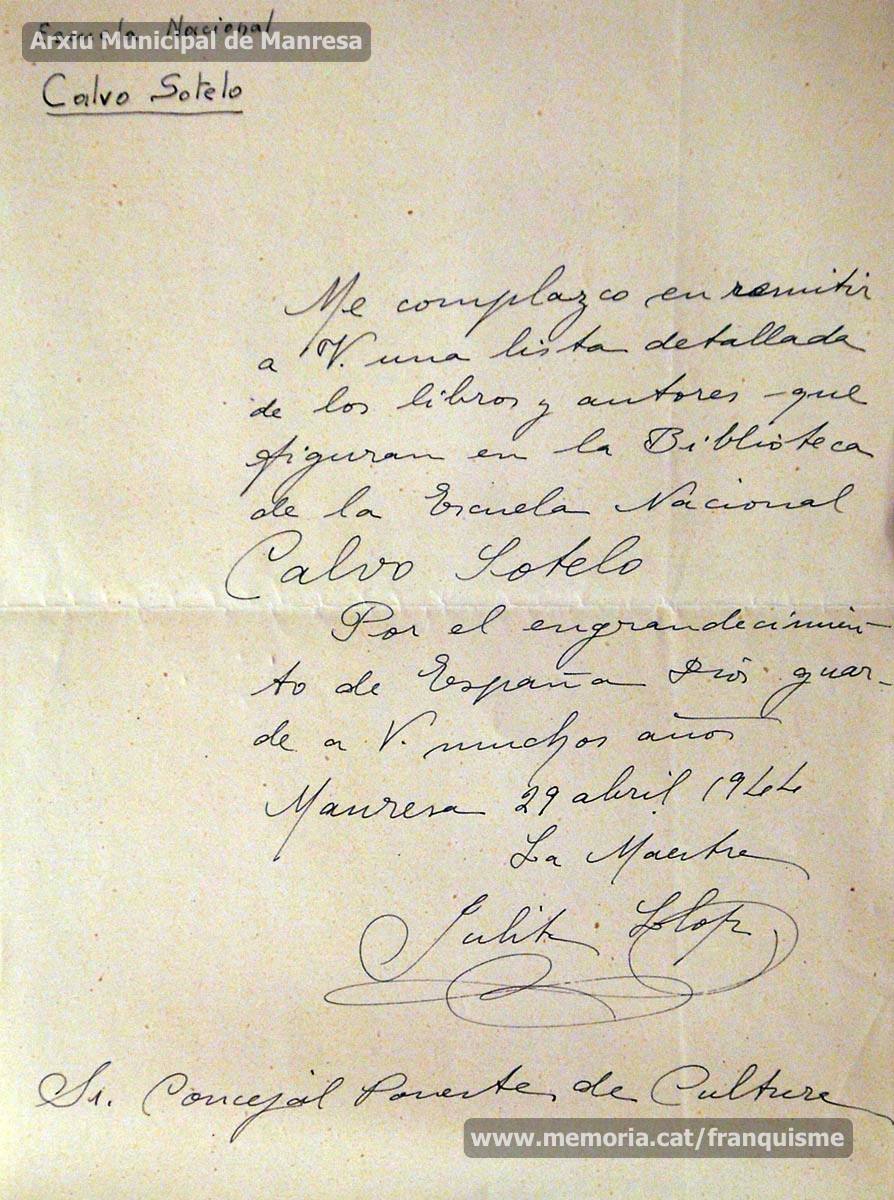 Escuela Nacional
Arxiu Municipal de Manresa
Calvo Sotelo
Me complazco en remitir
a V. una lista detallada
de los libros y autores que
figuran en la Biblioteca
de la Escuela Nacional
Calvo Sotelo
Por el engrandecimien-
to de España Dios guar-
de a V. muchos años
Manresa 29 abril 1944
La Maestra
Julita Llop
Sr. Concejál Ponente de Cultura
www.memoria.cat/franquisme